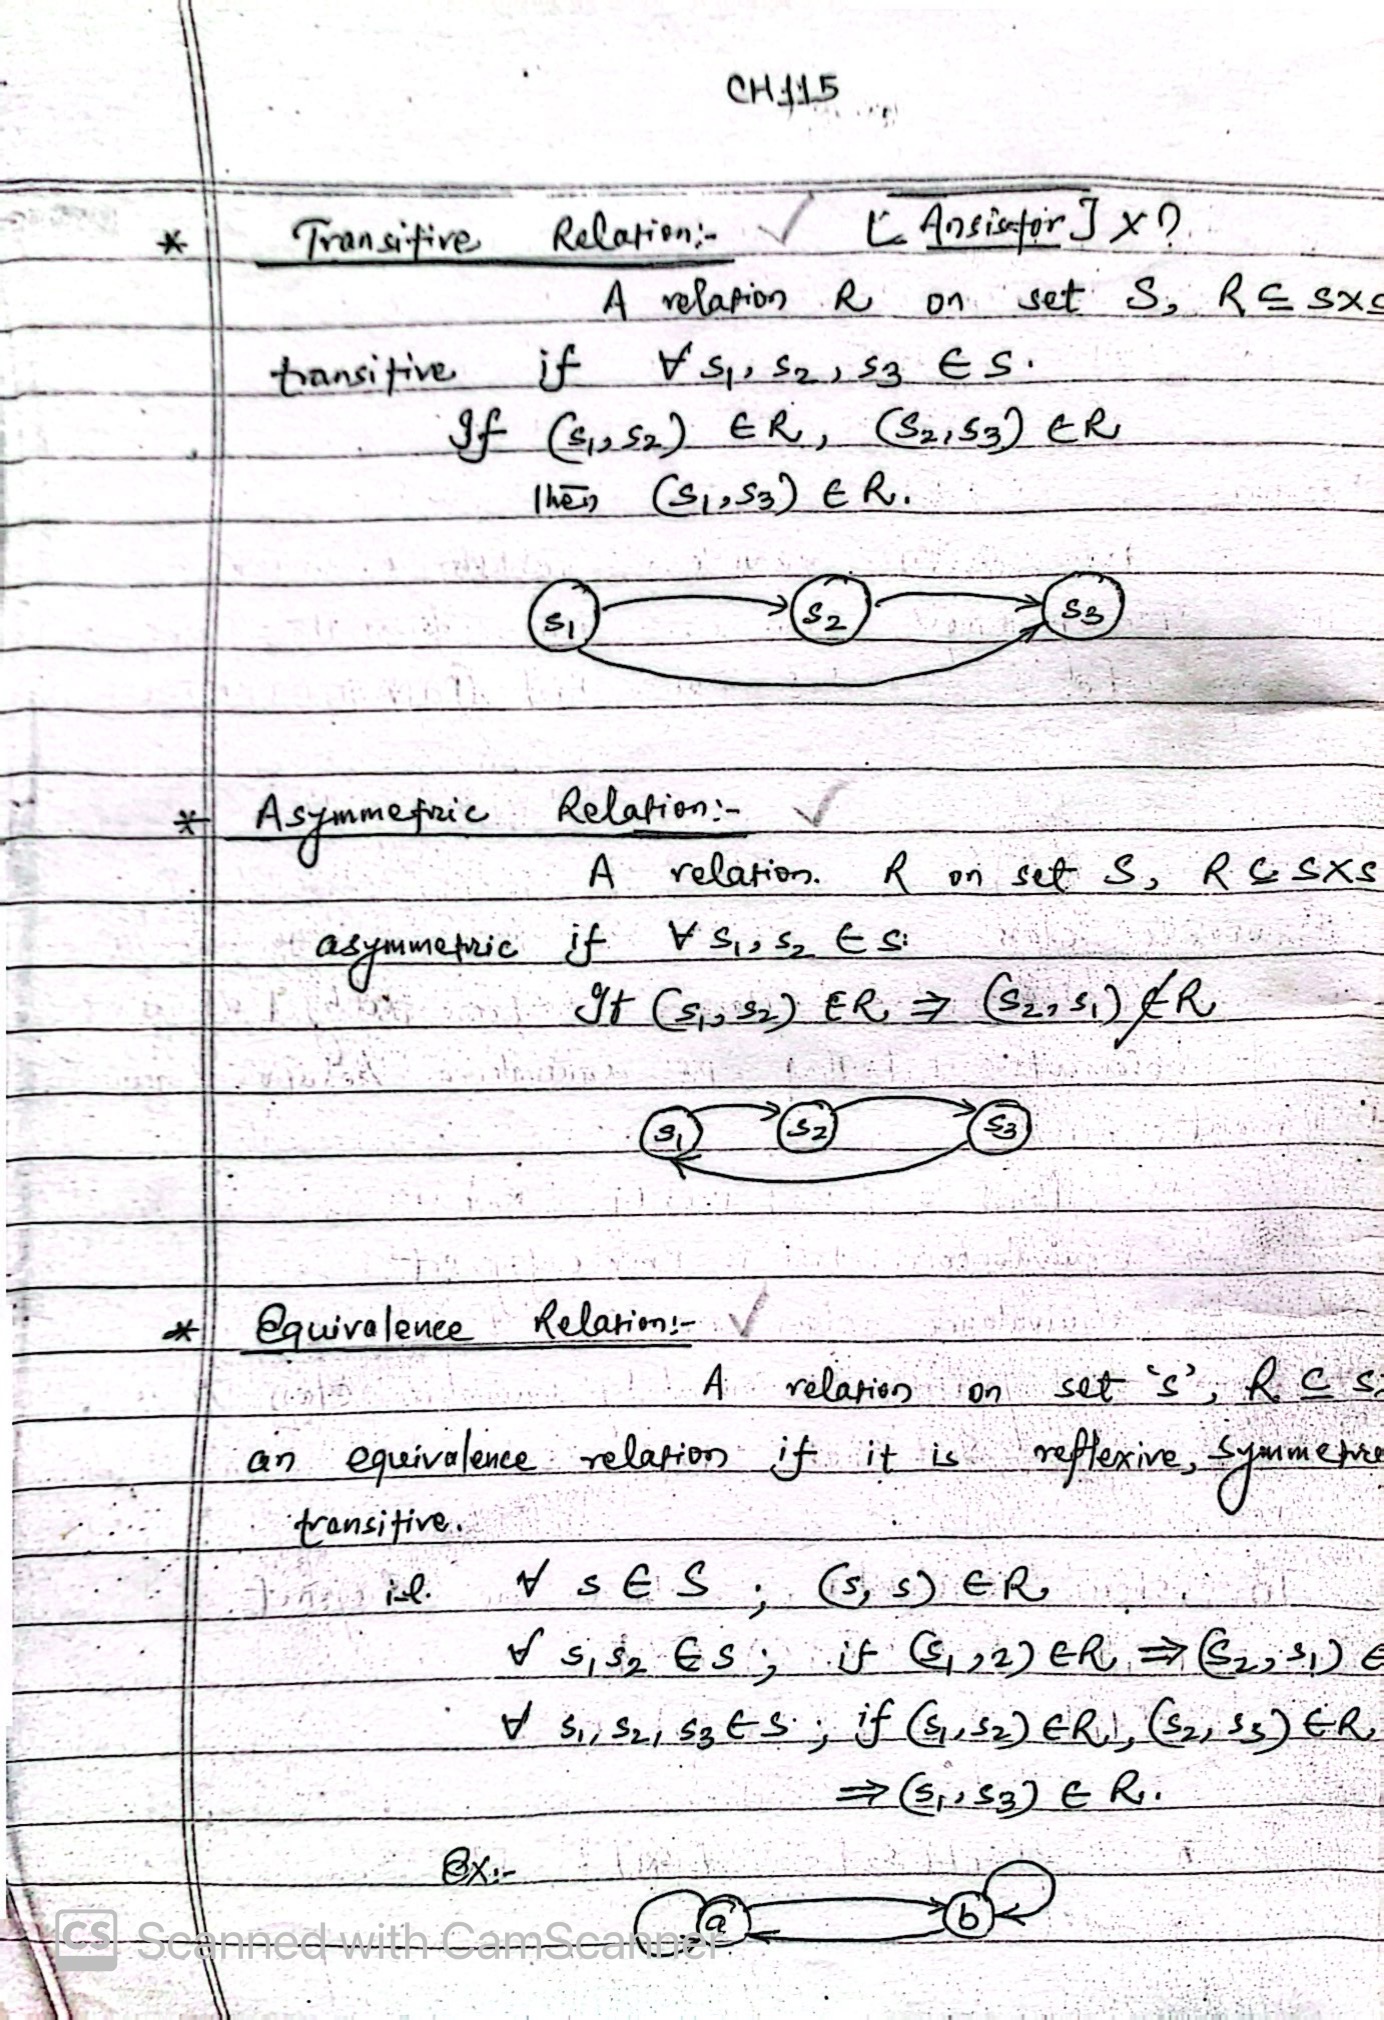 CH115
* Transitive Relation:- ✓ [Ansistor] x?
A relation R on set S, R ⊆ S×S
transitive if ∀ s1, s2, s3 ∈ S.
If (s1, s2) ∈ R, (s2, s3) ∈ R
then (s1, s3) ∈ R.
s1 s2 s3
* Asymmetric Relation:- ✓
A relation. R on set S, R ⊆ S×S
asymmetric if ∀ s1, s2 ∈ S:
If (s1, s2) ∈ R ⇒ (s2, s1) ∉ R
s1 s2 s3
* Equivalence Relation:- ✓
A relation on set 's', R ⊆ S
an equivalence relation if it is reflexive, symmetric
transitive.
i.e. ∀ s ∈ S ; (s, s) ∈ R
∀ s1 s2 ∈ S ; if (s1, 2) ∈ R ⇒ (s2, s1) ∈
∀ s1, s2, s3 ∈ S ; if (s1, s2) ∈ R, (s2, s3) ∈ R
⇒ (s1, s3) ∈ R.
Ex:-
a b
CS Scanned with CamScanner